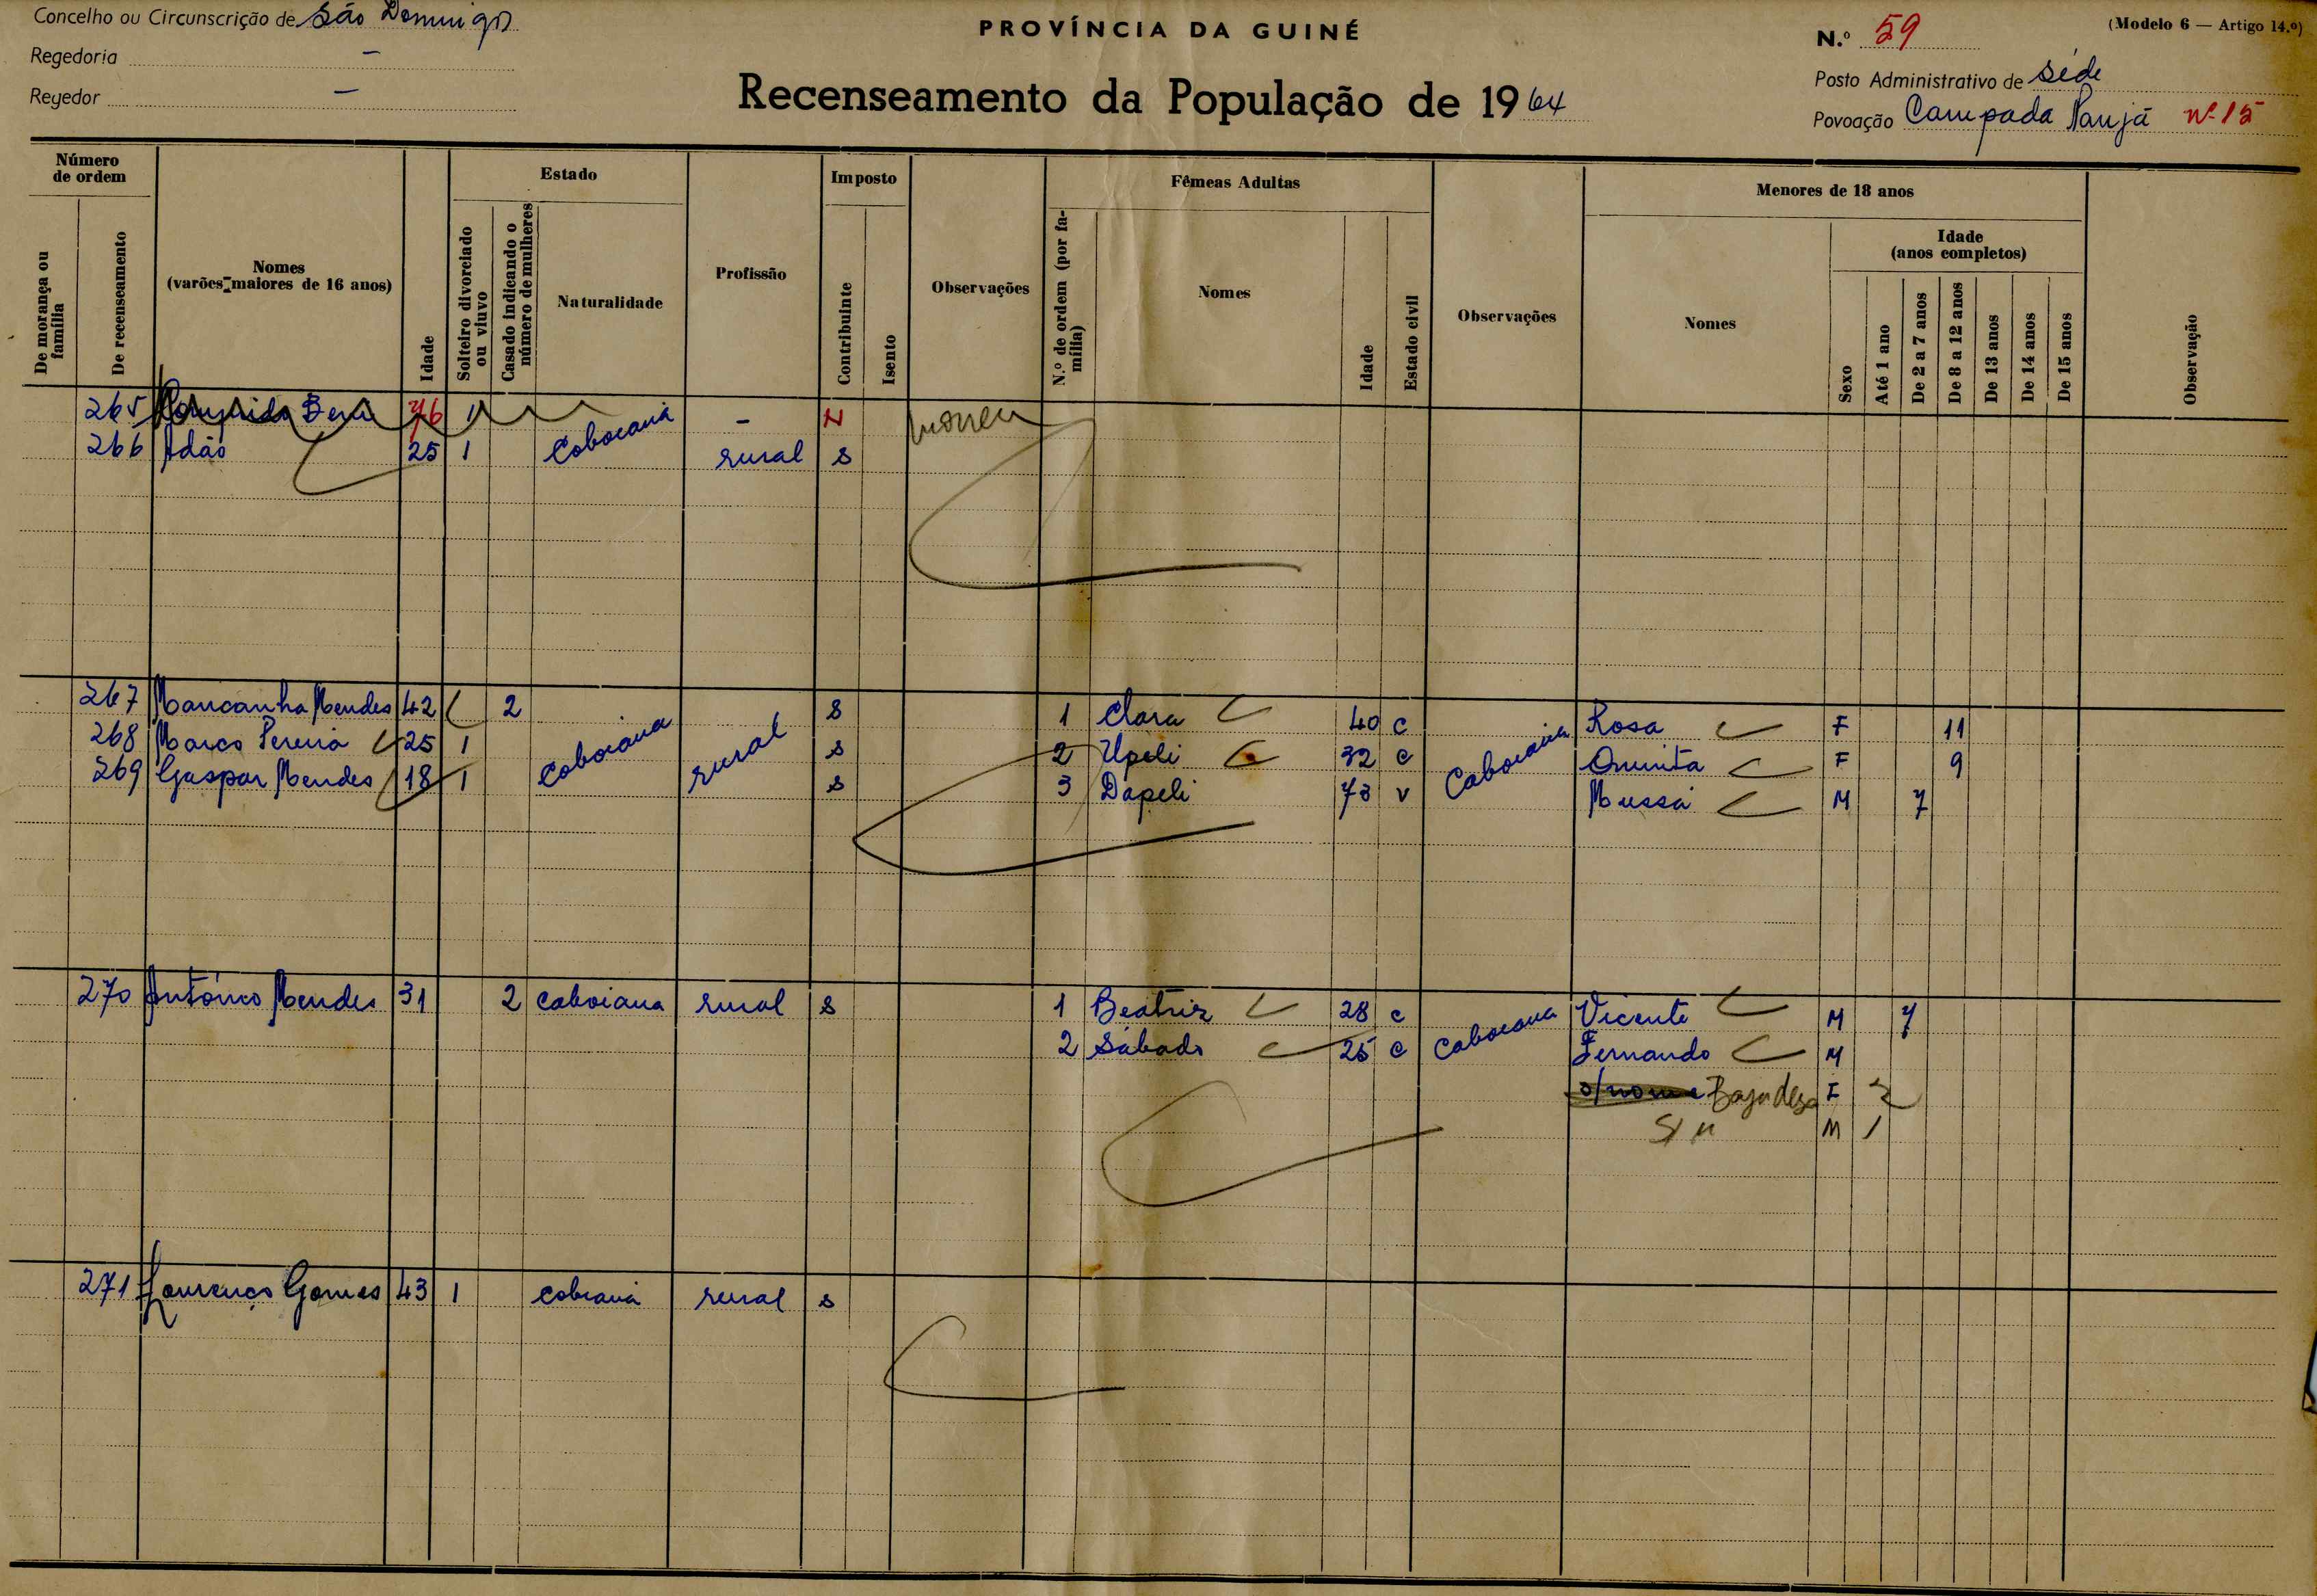 Concelho ou Circunscrição de São Domingos
Regedoria —
Regedor —
PROVÍNCIA DA GUINÉ
Recenseamento da População de 1964
(Modelo 6 — Artigo 14.º)
N.º 59
Posto Administrativo de Séde
Povoação Campada Nº 15
Número de ordem
De morança ou família
De recenseamento
Nomes (varões maiores de 16 anos)
Idade
Estado
Solteiro divorciado ou viuvo
Casado indicando o número de mulheres
Naturalidade
Profissão
Imposto
Contribuinte
Isento
Observações
Fêmeas Adultas
N.º de ordem (por família)
Nomes
Idade
Estado civil
Observações
Menores de 18 anos
Nomes
Sexo
Idade (anos completos)
Até 1 ano
De 2 a 7 anos
De 8 a 12 anos
De 13 anos
De 14 anos
De 15 anos
Observação
265 76 1 — N morreu
266 Adão 25 1 Coboiana rural s
267 Mancanha Mendes 42 2 s 1 Clara 40 c Rosa F 11
268 Março Pereira 25 1 Coboiana rural s 2 Upeli 32 c Caboiana F 9
269 Gaspar Mendes 18 1 s 3 Dapeli 73 v Mussá M 7
270 António Mendes 31 2 caboiana rural s 1 Beatriz 28 c Vicente M 7
2 Sábado 25 c Caboiana Fernando M
s/nome F 2
S/ N M 1
271 Lourenço Gomes 43 1 cobiana rural s